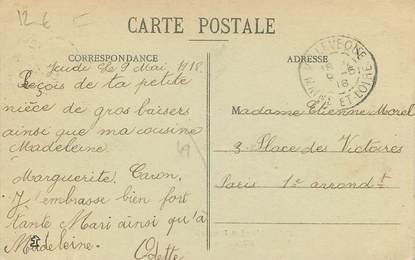 12 €
CARTE POSTALE
CORRESPONDANCE
Jeudi le 9 Mai 1918.
Reçois de ta petite
nièce de gros baisers
ainsi que ma cousine
Madeleine.
Marguerite. Caron,
J'embrasse bien fort
tante Mari ainsi qu'à
Madeleine.
Odette
ADRESSE
VILLEVEQUE
MAINE ET LOIRE
Madame Etienne Morel
3 Place des Victoires
Paris 1er arrondt